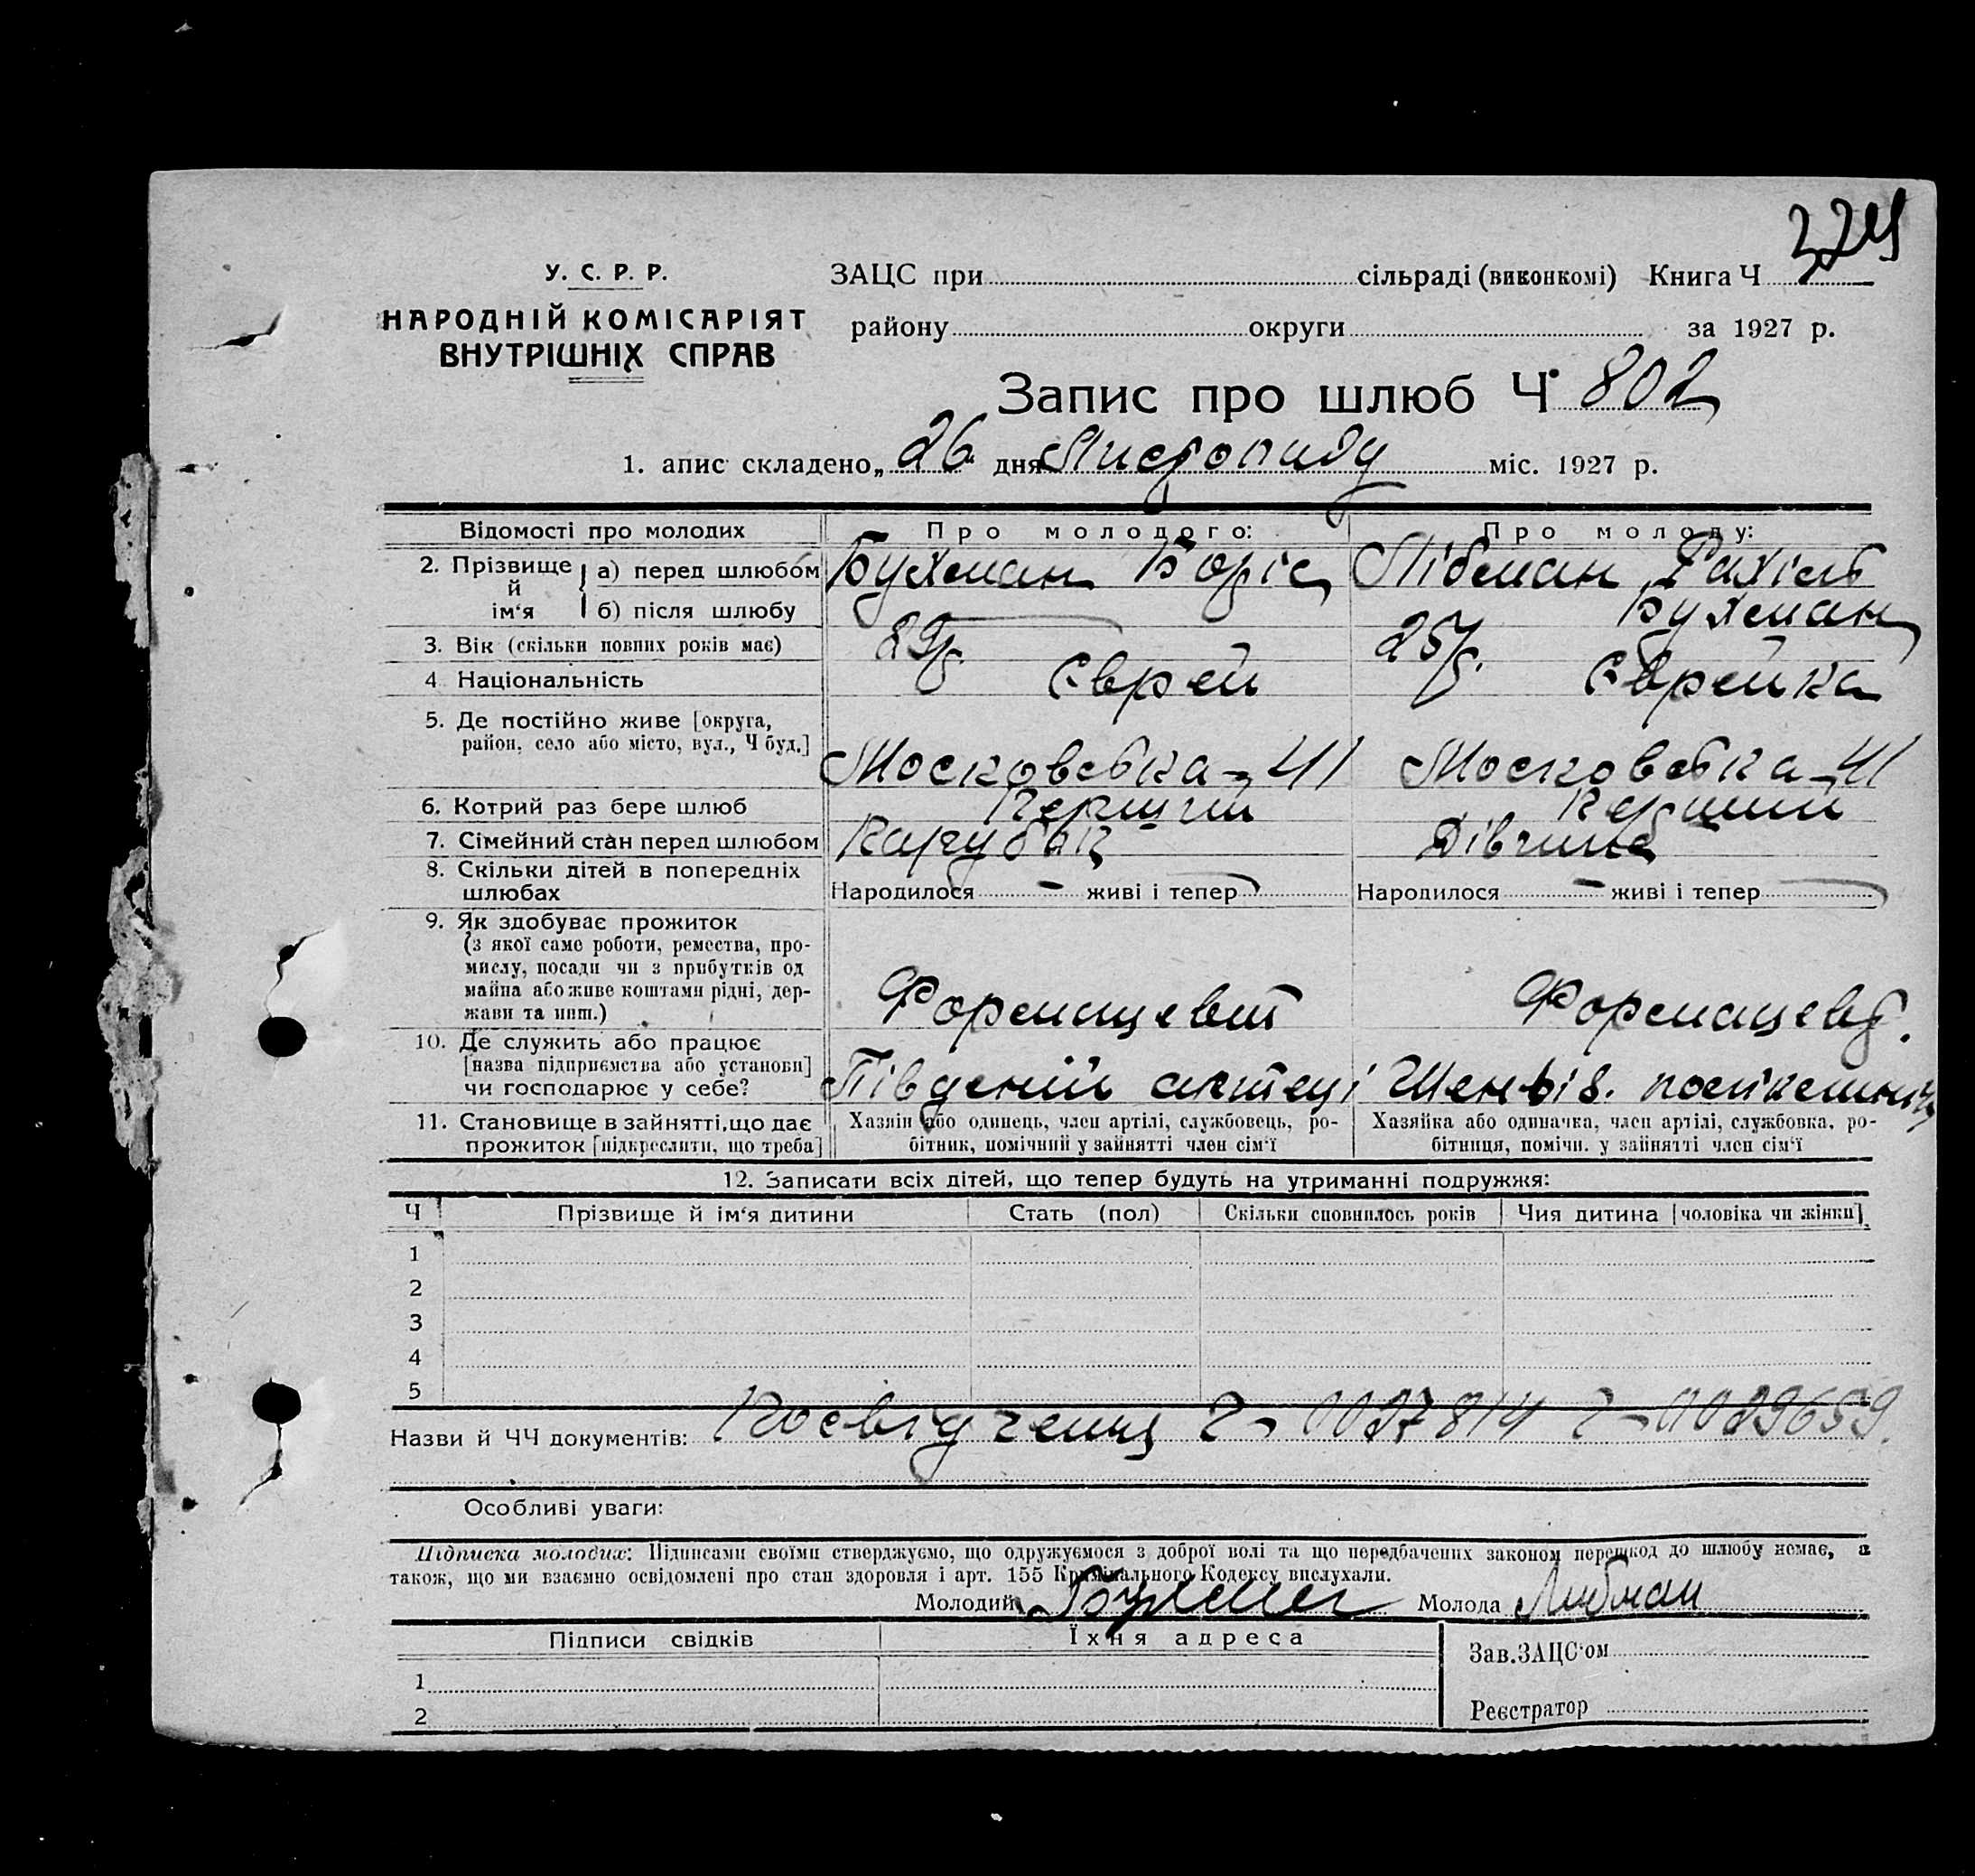 У. С. Р. Р.
НАРОДНІЙ КОМІСАРІЯТ
ВНУТРІШНІХ СПРАВ
ЗАЦС при сільраді (виконкомі) Книга Ч
району округи за 1927 р.
Запис про шлюб Ч. 802
1. апис складено „ 26 " дня Листопаду міс. 1927 р.
Відомості про молодих Про молодого: Про молоду:
2. Прізвище й ім'я а) перед шлюбом Бухман Боріс Лібман Рахіль
б) після шлюбу Бухман
3. Вік (скільки повних років має) 25
4 Національність Єврей Єврейка
5. Де постійно живе [округа, район, село або місто, вул., Ч буд.] Московська-41 Московська-41
6. Котрий раз бере шлюб Перший Перший
7. Сімейний стан перед шлюбом Парубок Дівчина
8. Скільки дітей в попередніх шлюбах Народилося - живі і тепер Народилося - живі і тепер
9. Як здобуває прожиток
(з якої саме роботи, ремества, про-
мислу, посади чи з прибутків од
майна або живе коштами рідні, дер-
жави та инш.) Формацевт Формацевт.
10. Де служить або працює
[назва підприємства або установи]
чи господарює у себе? Південій
11. Становище в зайнятті, що дає Хазяін або одинець, член артілі, службовець, ро- Хазяйка або одиначка, член артілі, службовка, ро-
прожиток [підкреслити, що треба] бітник, помічний у зайнятті член сім'ї бітниця, помічн. у зайнятті член сім'ї
12. Записати всіх дітей, що тепер будуть на утриманні подружжя:
Ч Прізвище й ім'я дитини Стать (пол) Скільки сповнилось років Чия дитина [чоловіка чи жінки]
1
2
3
4
5
Назви й ЧЧ документів: Посвідчення
Особливі уваги:
Підписка молодих: Підписами своїми стверджуємо, що одружуємося з доброї волі та що передбачених законом перешкод до шлюбу немає, а
також, що ми взаємно освідомлені про стан здоровля і арт. 155 Кримінального Кодексу вислухали.
Молодий Молода Либман
Підписи свідків Їхня адреса Зав. ЗАЦС'ом
1
2 Реєстратор